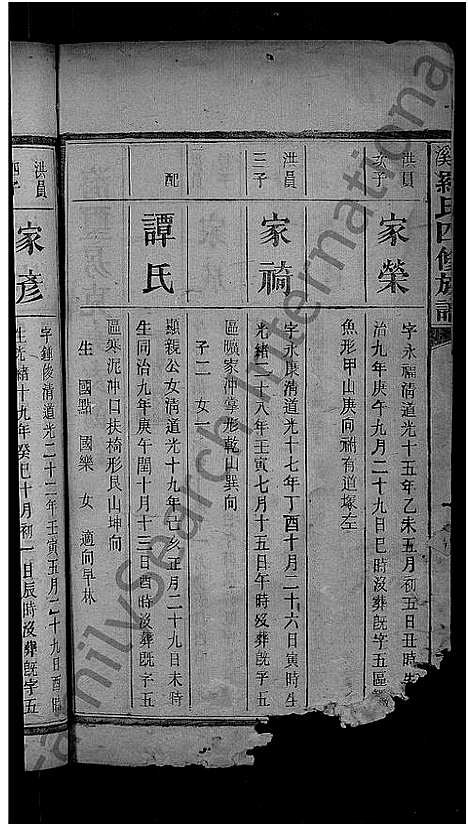 溪羅氏四修族譜
洪員
次子
家榮
字永福清道光十五年乙未五月初五日丑時生
治九年庚午九月二十九日巳時沒葬旣字五區
魚形甲山庚向祔有道塚左
洪員
三子
家裿
字永康清道光十七年丁酉十月二十六日寅時生
光緒二十八年壬寅七月十五日午時沒葬旣字五
區曠家冲掌形乾山巽向
子二 女一
配
譚氏
顯親公女清道光十九年己亥正月二十九日未時
生同治九年庚午閏十月十三日酉時沒葬旣字五
區寒泥冲口扶椅形艮山坤向
生 國點 國樂 女 適向早林
洪員
四子
家彥
字鍾俊清道光二十二年壬寅五月二十九日酉時
生光緒十九年癸巳十月初一日辰時沒葬旣字五
FamilySearch International